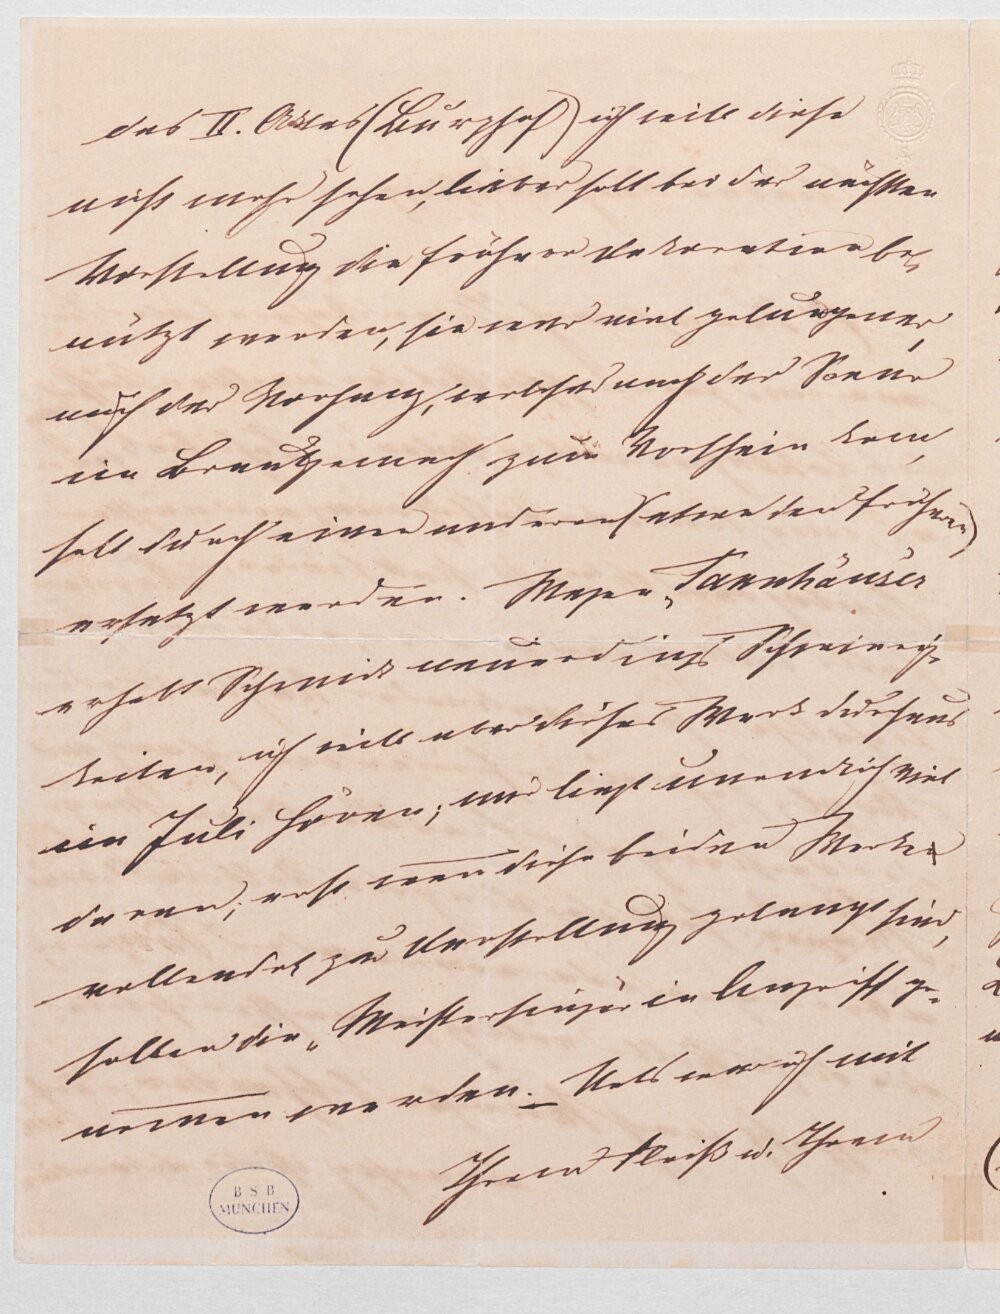 des II. Aktes (Burghof) ich will diese
nicht mehr sehen, lieber soll bei der nächsten
Vorstellung die frühere Dekoration be-
nützt werden, sie war viel gelungener,
auch der Vorhang, welcher nach der Scene
im Brautgemach zum Vorschein kam,
soll durch einen anderen (etwa den früheren)
ersetzt werden. Wegen „Tannhäuser
erhebt Schmidt neuerdings Schwierig-
keiten, ich will aber dieses Werk durchaus
im Juli hören; mir liegt unendlich viel
daran; erst wenn diese beiden Werke
vollendet zur Vorstellung gelangt sind,
sollen die „Meistersinger in Angriff ge-
nommen werden. – Als ich mit
Ihrem Fleiß u. Ihrem
B S B
MÜNCHEN